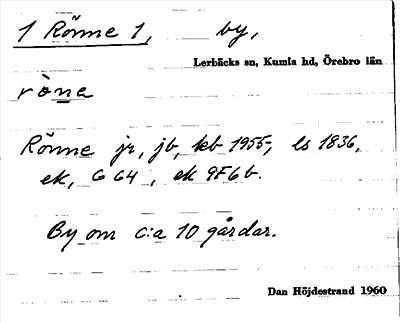 1 Rönne 1, by,
Lerbäcks sn, Kumla hd, Örebro län
ròne
Rönne jr, jb, kb 1955-, ls 1836,
ek, G G4, ek 9F6b.
By om c:a 10 gårdar.
Dan Höjdestrand 1960